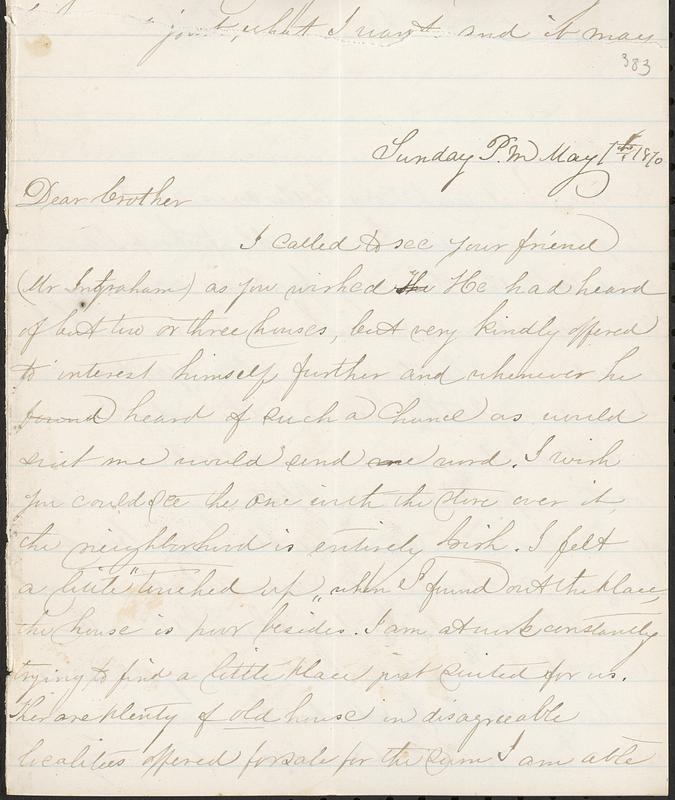 just what I want and it may
383
Sunday P.M May 1st 1870
Dear brother
I called to see your friend
(Mr Ingraham) as you wished the He had heard
of but two or three houses, but very kindly offered
to interest himself further and whenever he
found heard of such a chance as would
suit me would send me word. I wish
you could see the one with the store over it,
the neighborhood is entirely Irish. I felt
a little "touched up" when I found out the place,
the house is poor besides. I am at work constantly
trying to find a little place just suited for us.
Ther are plenty of old house in disagreeable
localities offered for sale for the sum I am able